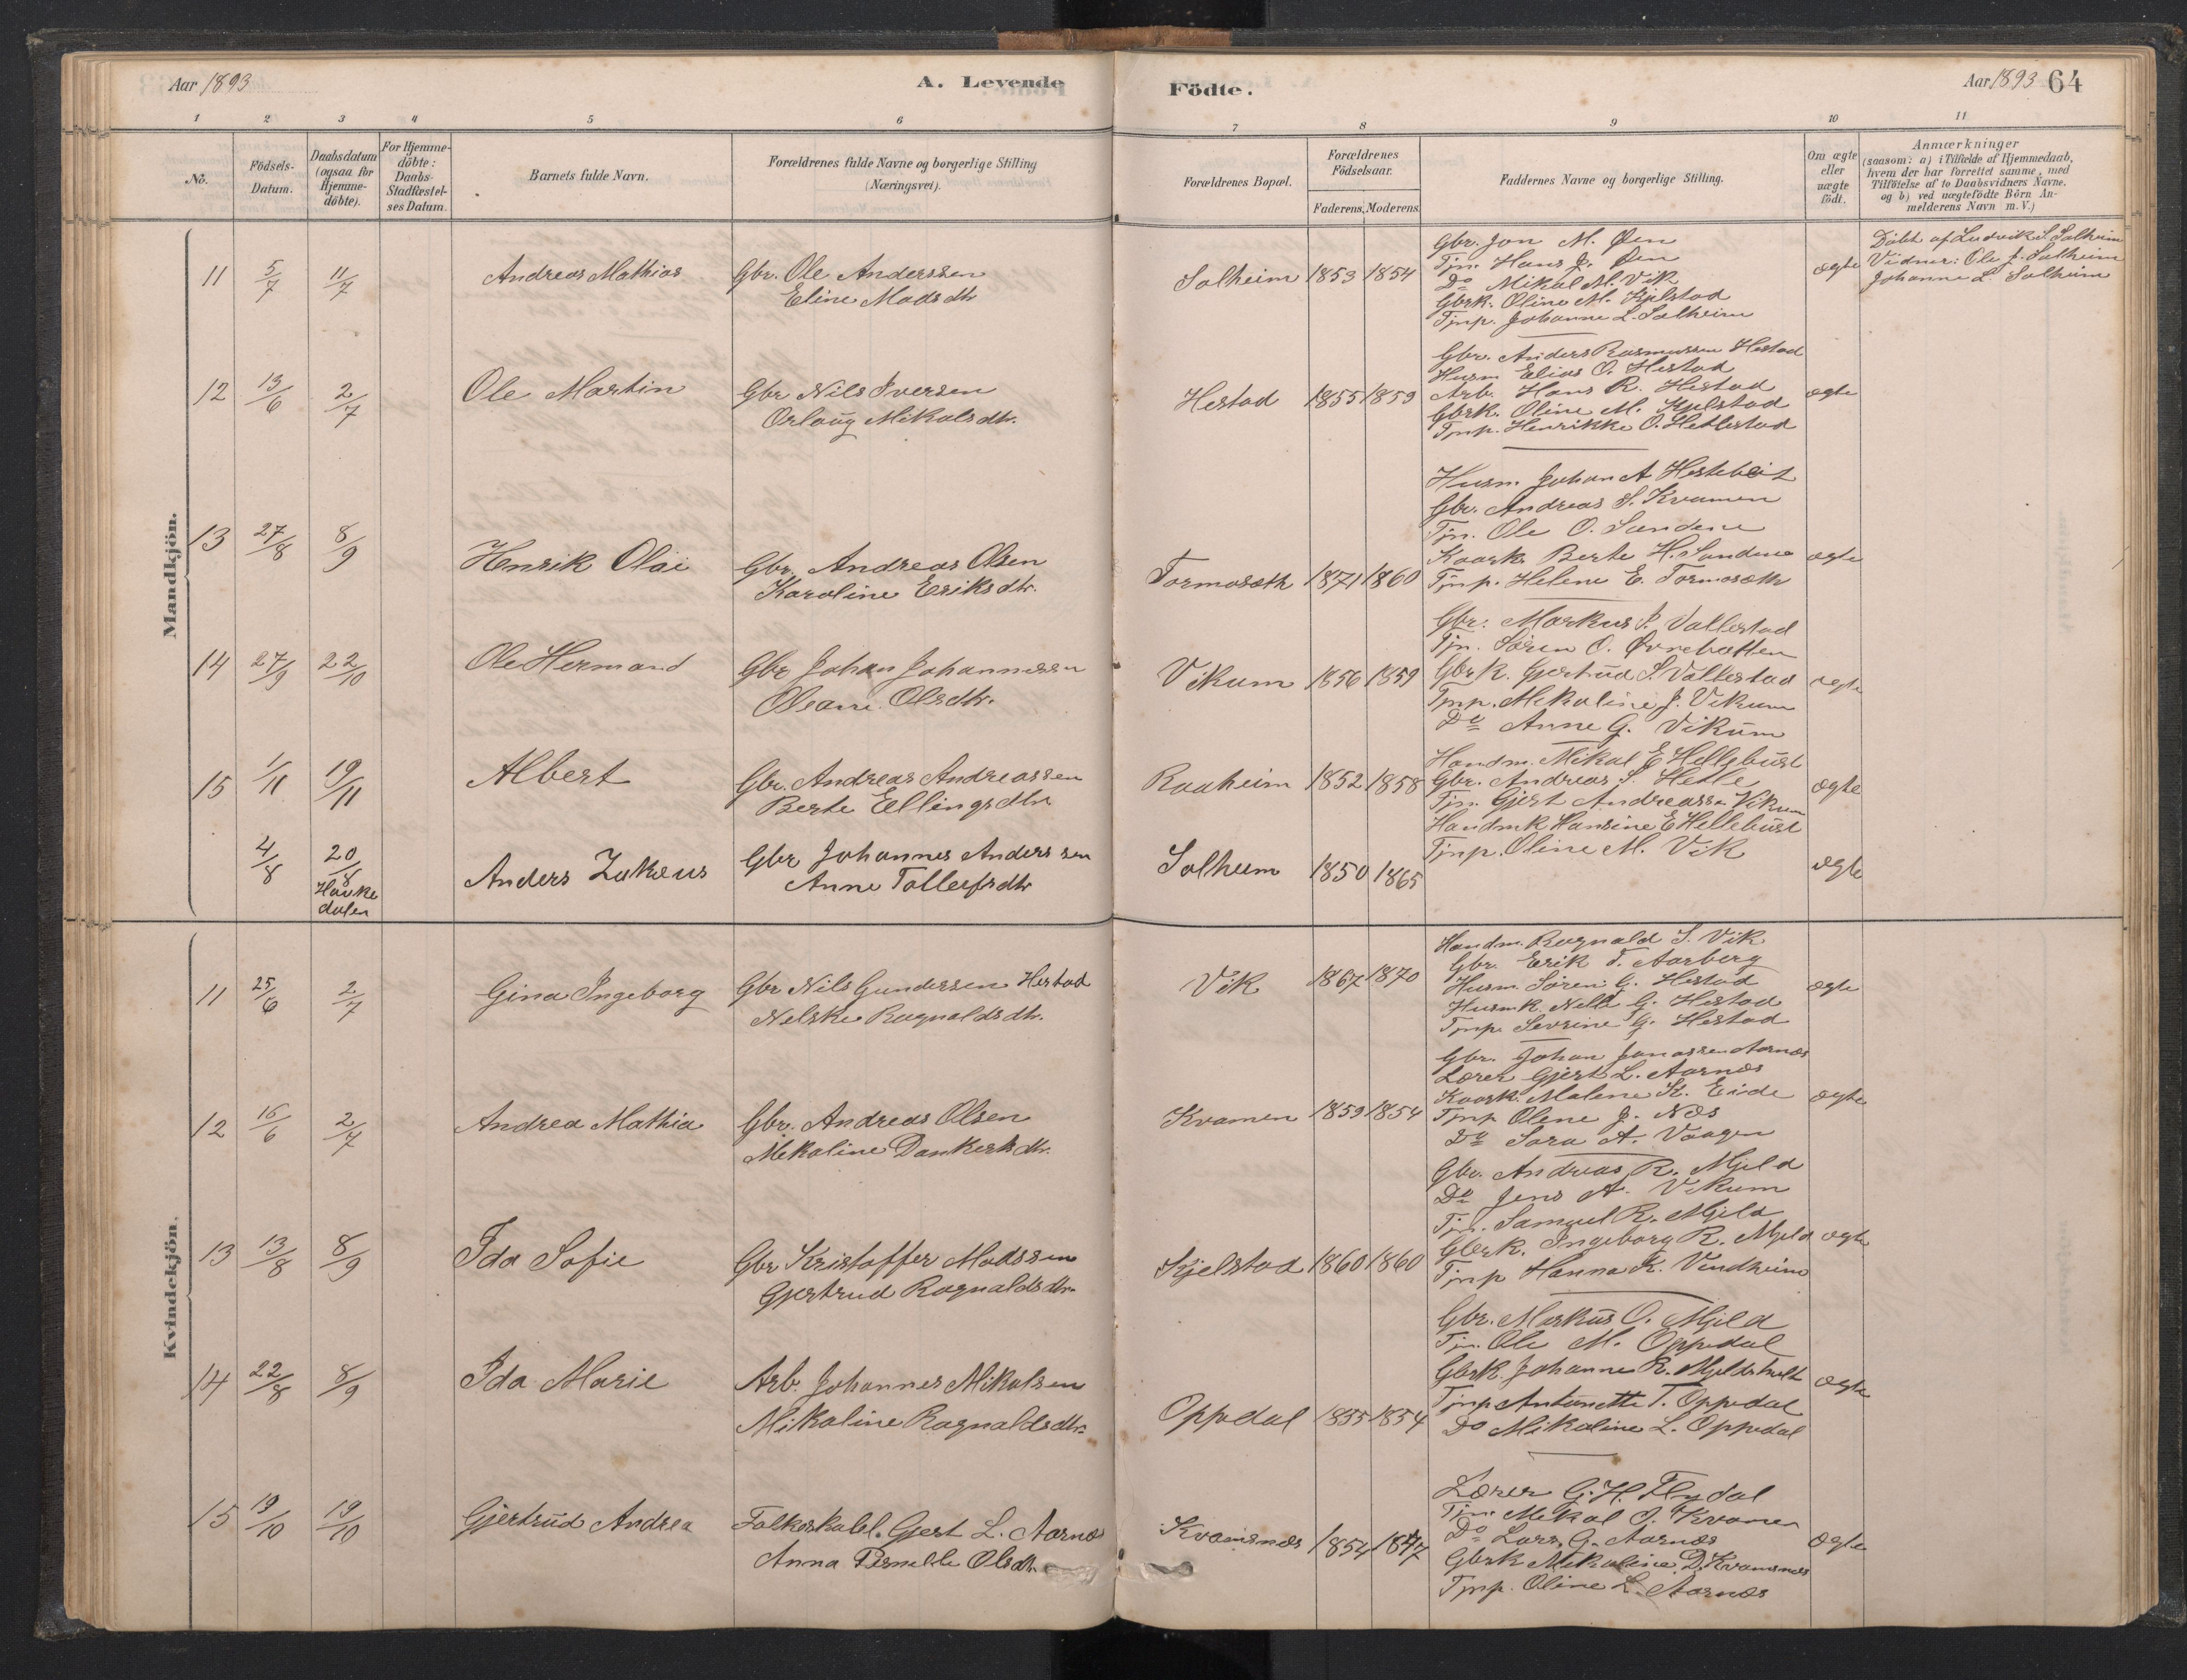 Aar 1893
A. Levende
Födte.
Aar 1893 64
1 2 3 4 5 6 7 8 9 10 11
No.
Födsels-
Datum.
Daabsdatum
(ogsaa for
Hjemme-
döbte).
For Hjemme-
döbte:
Daabs-
Stadfæstel-
ses Datum.
Barnets fulde Navn.
Forældrenes fulde Navne og borgerlige Stilling
(Næringsvei).
Forældrenes Bopæl.
Forældrenes
Födselsaar.
Faderens. Moderens.
Faddernes Navne og borgerlige Stilling.
Om ægte
eller
uægte
födt.
Anmærkninger
(saasom: a) i Tilfælde af Hjemmedaab,
hvem der har forrettet samme, med
Tilföielse af to Daabsvidners Navne,
og b) ved uægtefödte Börn An-
melderens Navn m. V.)
Mandkjön.
11 5/7 11/7 Andreas Mathias
Gbr. Ole Anderssen
Eline Madsdtr
Solheim 1853 1854
Gbr. Jon M. Øen
Tjn. Hans J. Øen
Do Mikal M. Vik
Gbrk. Oline M. Kjelstad
Tjnp. Johanne L. Solheim
ægte
Döbt af Ludvik S. Solheim
Vidner: Ole J. Solheim
Johanne L. Solheim
12 13/6 2/7 Ole Martin
Gbr Nils Iversen
Orlaug Mikalsdtr.
Hestad 1855 1859
Gbr. Anders Rasmussen Hestad
Husm Elias O. Hestad
Arb. Hans R. Hestad
Gbrk. Oline M. Kjelstad
Tjnp. Henrikke O. Hetlestad
ægte
13 27/8 8/9 Henrik Olai
Gbr. Andreas Olsen
Karoline Eriksdtr.
Tormosæth 1871 1860
Husm. Johan A. Hestebeit
Gbr. Andreas S. Kvamen
Tjn. Ole O. Sandene
Kaark. Berte H. Sandene
Tjnp. Helene E. Tormosæth
ægte
14 27/9 22/10 Ole Hermand
Gbr Johan Johannessen
Oleane Olsdtr.
Vikum 1856 1859
Gbr. Markus P. Vallestad
Tjn. Sören O. Øvrebotten
Gbrk. Gjertrud S. Vallestad
Tjnp. Mikaline J. Vikum
Do Anne G. Vikum
ægte
15 1/11 19/11 Albert
Gbr. Andreas Andreassen
Berte Ellingsdtr
Raaheim 1852 1858
Handm. Mikal E Hellebust
Gbr. Andreas S. Hetle
Tjn. Gjert Andreassn Vikum
Handmk Hansine E Hellebust
Tjnp. Oline M. Vik
ægte
4/8 20/8 Haukedalen
Anders Zakæus
Gbr Johannes Anderssen
Anne Tollefsdtr
Solheim 1850 1865
ægte
Kvindekjön.
11 25/6 2/7 Gina Ingeborg
Gbr Nils Gundersen Hestad
Nelske Ragnaldsdtr.
Vik 1867 1870
Handm. Ragnald S. Vik
Gbr. Erik T. Aarberg
Husm. Sören G. Hestad
Husmk. Nella G. Hestad
Tjnp. Severine G. Hestad
ægte
12 16/6 2/7 Andrea Mathia
Gbr. Andreas Olsen
Mikaline Dankertsdtr.
Kvamen 1859 1854
Gbr. Johan Jonassen Aarnæs
Lærer Gjert L. Aarnæs
Kaark. Malene K. Eide
Tjnp Olene J. Næs
Do Sara A. Vaagen
ægte
13 13/8 8/9 Ida Sofie
Gbr Kristoffer Madssen
Gjertrud Ragnaldsdtr.
Kjelstad 1860 1860
Gbr. Andreas R. Mjeld
Do Jens A. Vikum
Tjn. Samuel R. Mjeld
Gbrk. Ingeborg R. Mjeld
Tjnp Hanna K. Vindheim
ægte
14 22/8 8/9 Ida Marie
Arb. Johannes Mikalsen
Mikaline Ragnaldsdtr.
Oppedal 1855 1854
Gbr. Markus O. Mjeld
Tjn. Ole M. Oppedal
Gbrk. Johanne R. Mjeldshult
Tjnp Antonette T. Oppedal
Do Mikaline L. Oppedal
ægte
15 19/10 19/10 Gjertrud Andrea
Folkeskolel. Gjert L. Aarnæs
Anna Pernelle Olsdtr
Kvamsnæs 1854 1847
Lærer G. H. Flydal
Tjn. Mikal O. Kvamen
Do Lars G. Aarnæs
Gbrk Mikaline D. Kvamsnæs
Tjnp. Oline L. Aarnæs
ægte